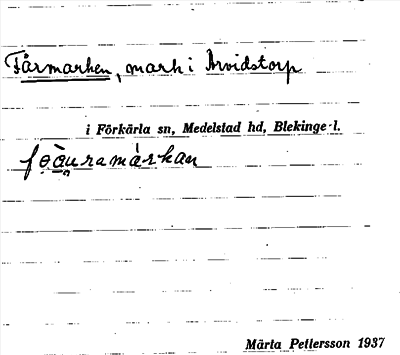 Fårmarken, mark i Arvidstorp
i Förkärla sn, Medelstad hd, Blekinge l.
fo̤å̤uramárkan
Märta Pettersson 1937